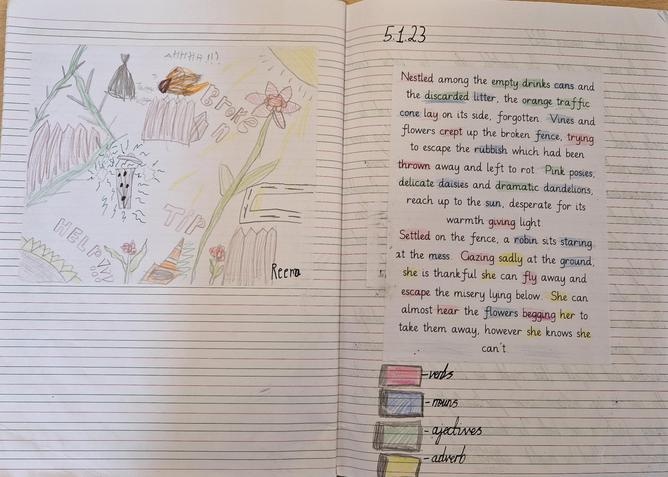 AHHHA!!!
Broke
n
TIP
HELP
Reena
5.1.23
Nestled among the empty drinks cans and
the discarded litter, the orange traffic
cone lay on its side, forgotten. Vines and
flowers crept up the broken fence, trying
to escape the rubbish which had been
thrown away and left to rot. Pink posies,
delicate daisies and dramatic dandelions,
reach up to the sun, desperate for its
warmth giving light
Settled on the fence, a robin sits staring
at the mess. Gazing sadly at the ground,
she is thankful she can fly away and
escape the misery lying below. She can
almost hear the flowers begging her to
take them away, however she knows she
can't
-verbs
-nouns
-ajectives
-adverb